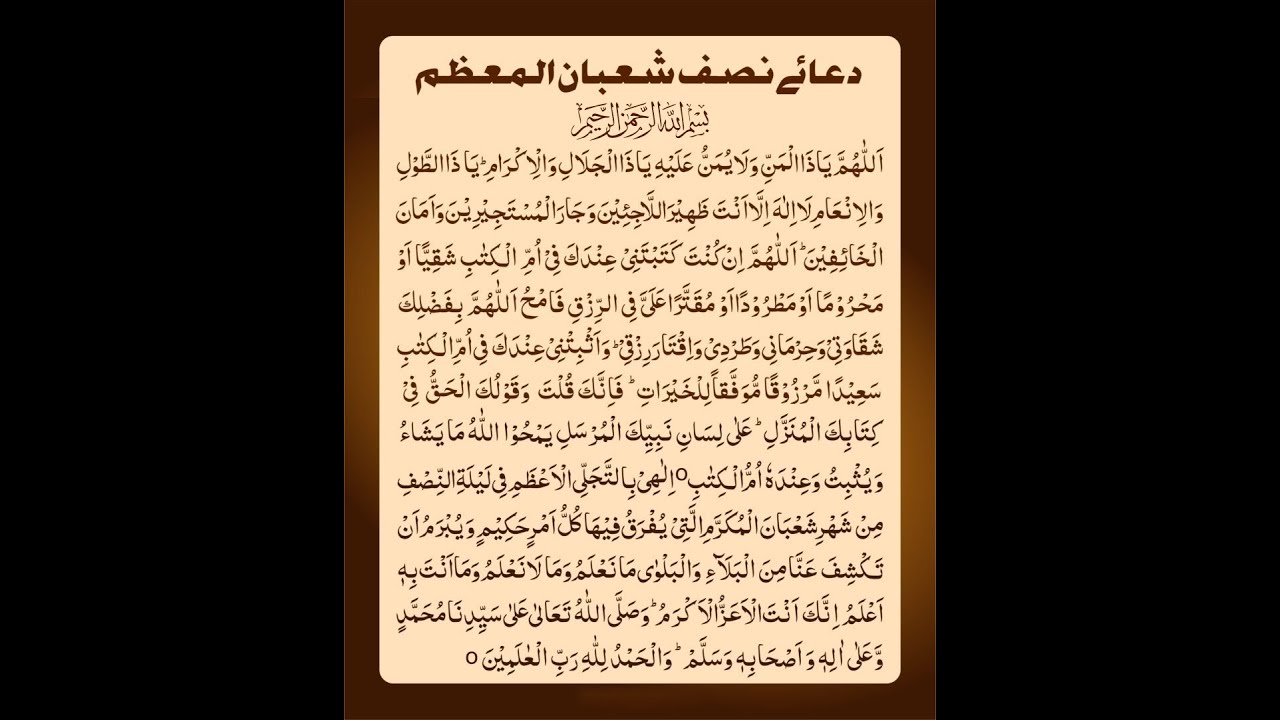 دعائے نصف شعبان المعظم
بِسْمِ اللهِ الرَّحْمٰنِ الرَّحِيْمِ
اَللّٰهُمَّ يَا ذَا الْمَنِّ وَلَا يُمَنُّ عَلَيْهِ يَا ذَا الْجَلَالِ وَالْاِكْرَامِ ؕ يَا ذَا الطَّوْلِ
وَالْاِنْعَامِ لَا اِلٰهَ اِلَّا اَنْتَ ظَهِيْرَ اللَّاجِئِيْنَ وَجَارَ الْمُسْتَجِيْرِيْنَ وَاَمَانَ
الْخَائِفِيْنَ ؕ اَللّٰهُمَّ اِنْ كُنْتَ كَتَبْتَنِیْ عِنْدَكَ فِیْ اُمِّ الْكِتٰبِ شَقِيًّا اَوْ
مَحْرُوْمًا اَوْ مَطْرُوْدًا اَوْ مُقَتَّرًا عَلَیَّ فِی الرِّزْقِ فَامْحُ اَللّٰهُمَّ بِفَضْلِكَ
شَقَاوَتِیْ وَحِرْمَانِی وَطَرْدِیْ وَاِقْتَارَ رِزْقِیْ ؕ وَاَثْبِتْنِیْ عِنْدَكَ فِی اُمِّ الْكِتٰبِ
سَعِيْدًا مَّرْزُوْقًا مُّوَفَّقاً لِلْخَيْرَاتِ ؕ فَاِنَّكَ قُلْتَ وَقَوْلُكَ الْحَقُّ فِیْ
كِتَابِكَ الْمُنَزَّلِ ؕ عَلٰی لِسَانِ نَبِيِّكَ الْمُرْسَلِ يَمْحُوْا اللّٰهُ مَا يَشَاءُ
وَيُثْبِتُ وَعِنْدَهٗ اُمُّ الْكِتٰبِ o اِلٰهِیْ بِالتَّجَلِّی الْاَعْظَمِ فِی لَيْلَةِ النِّصْفِ
مِنْ شَهْرِ شَعْبَانَ الْمُكَرَّمِ الَّتِیْ يُفْرَقُ فِيْهَا كُلُّ اَمْرٍ حَكِيْمٍ وَّيُبْرَمُ اَنْ
تَكْشِفَ عَنَّا مِنَ الْبَلَآءِ وَالْبَلْوٰی مَا نَعْلَمُ وَمَا لَا نَعْلَمُ وَمَا اَنْتَ بِهٖ
اَعْلَمُ اِنَّكَ اَنْتَ الْاَعَزُّ الْاَكْرَمُ ؕ وَصَلَّی اللّٰهُ تَعَالٰی عَلٰی سَيِّدِنَا مُحَمَّدٍ
وَّعَلٰی اٰلِهٖ وَاَصْحَابِهٖ وَسَلَّمْ ؕ وَالْحَمْدُ لِلّٰهِ رَبِّ الْعٰلَمِيْنَ o